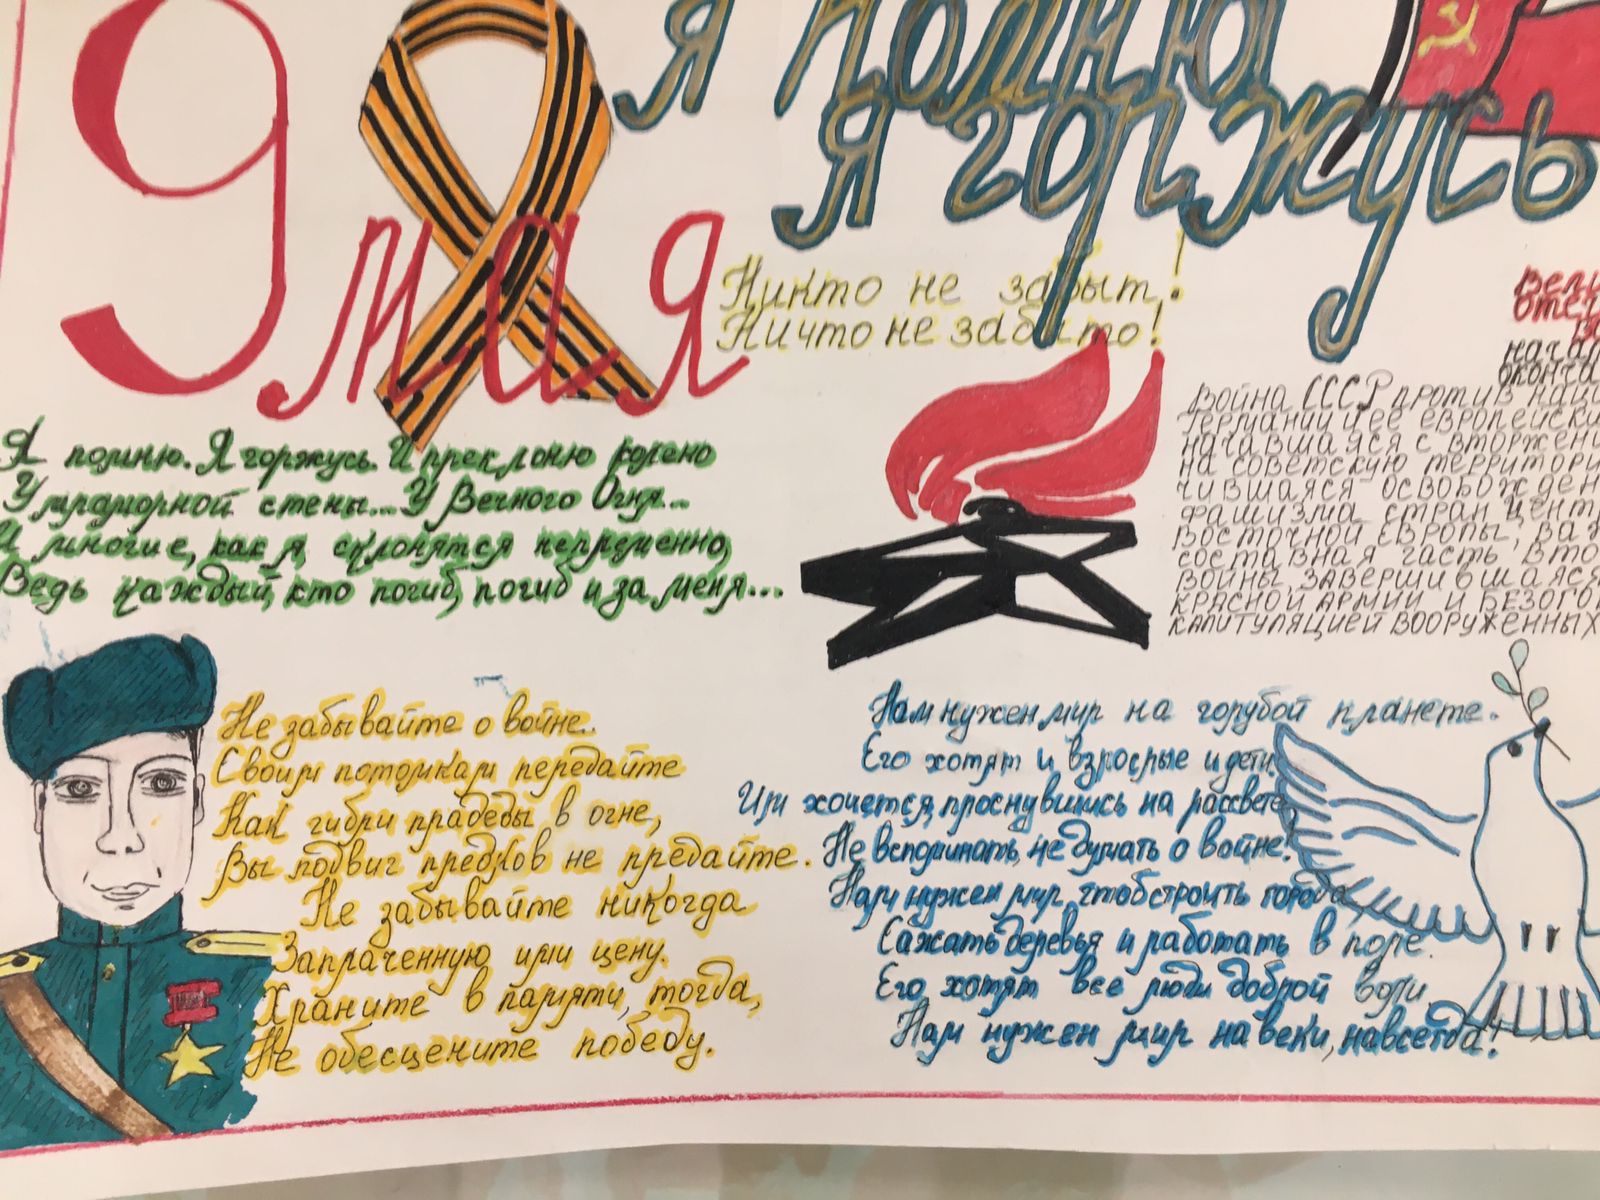 9 мая
Я помню
Я горжусь
Никто не забыт!
Ничто не забыто!
Я помню. Я горжусь. И преклоню колено
У мраморной стены... У Вечного Огня...
И многие, как я, склонятся непременно,
Ведь каждый, кто погиб, погиб и за меня...
Вели
Отеч
начал
оконча
Война СССР против
Германии и ее европейски
начавшаяся с вторжени
на советскую территори
чившаяся освобожден
фашизма стран Цент
Восточной Европы, ва
составная часть Вто
войны. завершившаяся
Красной Армии и безого
капитуляцией вооруженных
Не забывайте о войне.
Своим потомкам передайте
Как гибли прадеды в огне,
Вы подвиг предков не предайте.
Не забывайте никогда
Заплаченную ими цену.
Храните в памяти, тогда,
Не обесцените победу.
Нам нужен мир на голубой планете.
Его хотят и взрослые и дети.
Им хочется, проснувшись на рассвете,
Не вспоминать, не думать о войне.
Нам нужен мир, чтоб строить города,
Сажать деревья и работать в поле.
Его хотят все люди доброй воли.
Нам нужен мир навеки, навсегда!